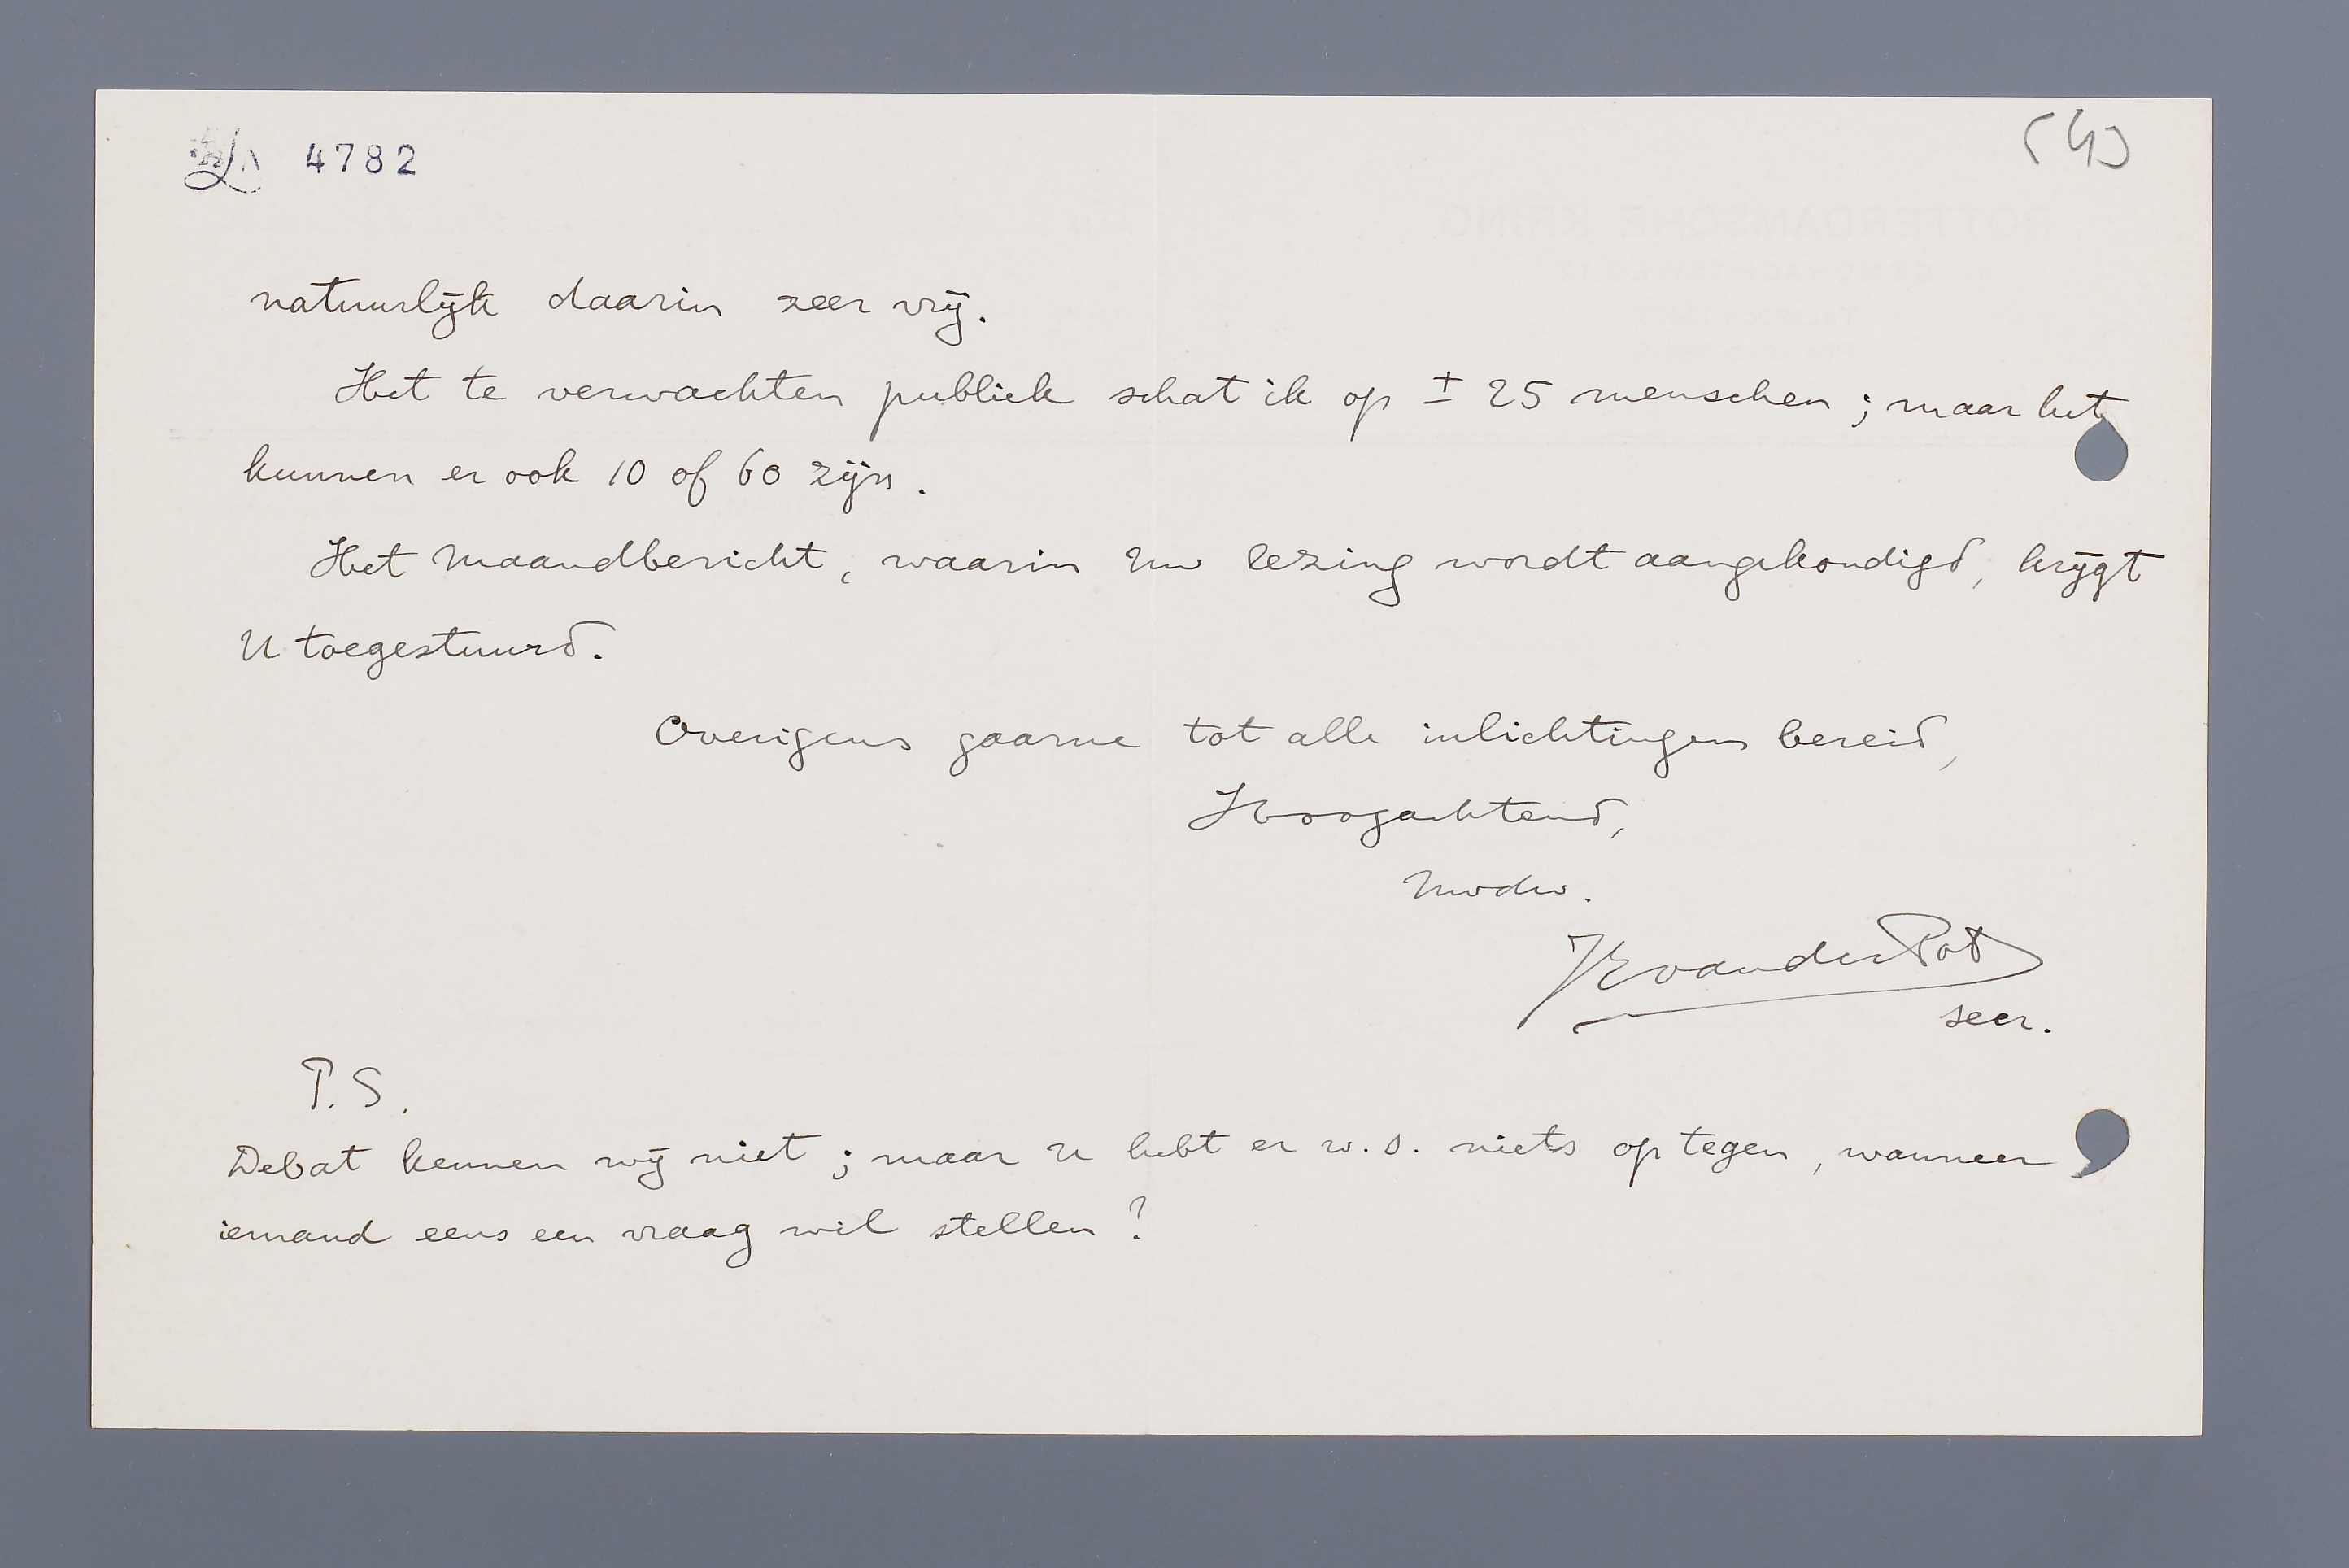 4782
natuurlijk daarin zeer vrij.
Het te verwachten publiek schat ik op ± 25 menschen ; maar het
kunnen er ook 10 of 60 zijn.
Het Maandbericht, waarin Uw lezing wordt aangekondigd, krijgt
U toegestuurd.
Overigens gaarne tot alle inlichtingen bereid,
Hoogachtend,
Uwdw.
JEvanderPot
secr.
P.S.
Debat kennen wij niet ; maar U hebt er w.s. niets op tegen, wanneer
iemand eens een vraag wil stellen ?